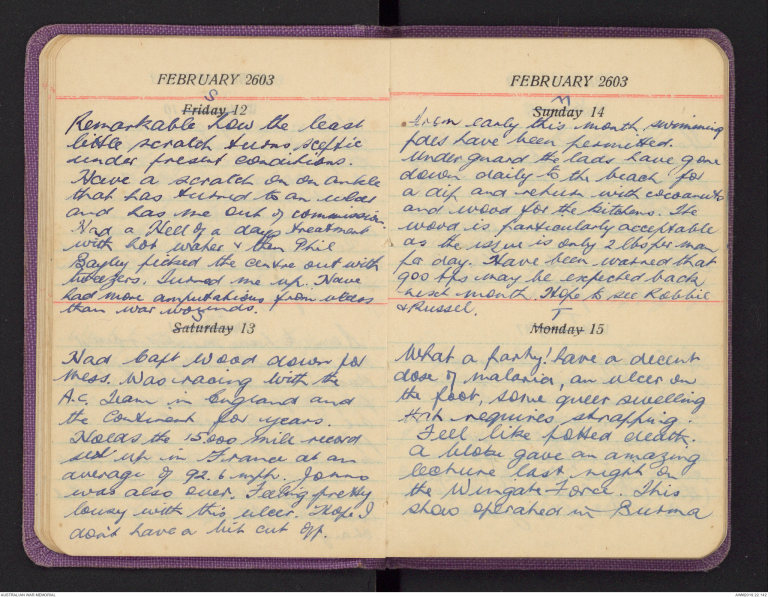 FEBRUARY 2603
S
Friday 12
Remarkable how the least
little scratch turns sceptic
under present conditions.
Have a scratch on an ankle
that has turned to an ulcer
and has me out of commission.
Had a Hell of a days treatment
with hot water & then Phil
Bayley picked the centre out with
tweezers. Turned me up. Have
had more amputations from ulcers
than war wounds.
Saturday 13
Had Capt Wood down for
Mess. Was racing with the
A.C. Team in England and
the Continent for years.
Holds the 15000 mile record
set up in France at an
average of 92.6 mph. Jonno
was also over. Feeling pretty
lousy with this ulcer. Hope I
don't have a bit cut off.
FEBRUARY 2603
Sunday 14
From early this month swimming
pdes have been permitted.
Under guard the lads have gone
down daily to the beach for
a dip and return with cocoanuts
and wood for the kitchens. The
wood is particularly acceptable
as the issue is only 2 lbs per man
per day. Have been warned that
900 tps may be expected back
next month. Hope to see Robbie
& Russel.
T
Monday 15
What a party! have a decent
dose of malaria, an ulcer on
the foot, some queer swelling
requires strapping.
Feel like potted death.
A bloke gave an amazing
lecture last night on
the Wingate Force. This
show operated in Burma
AUSTRALIAN WAR MEMORIAL